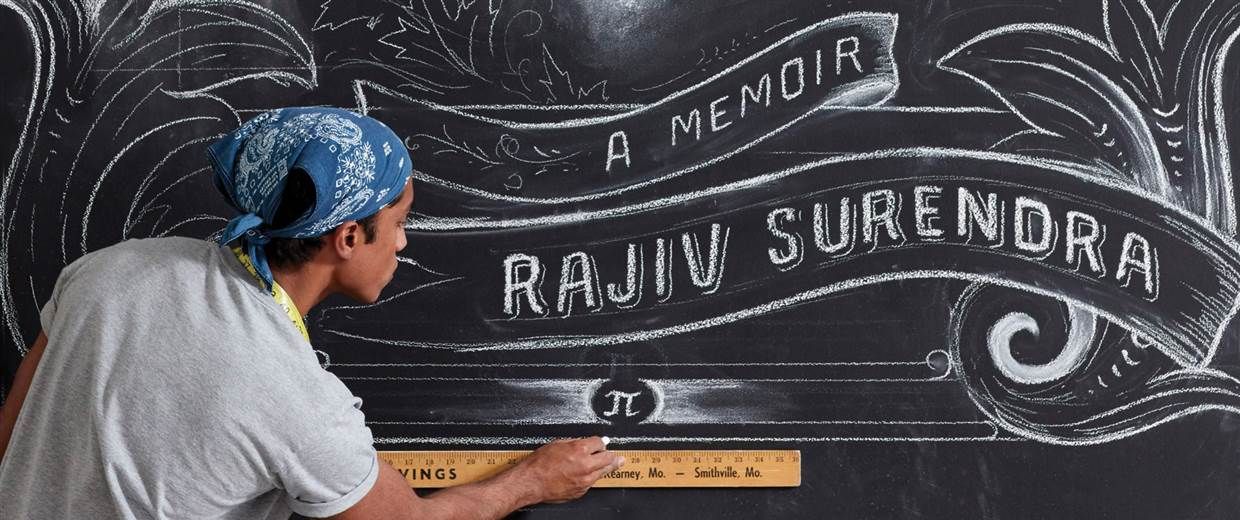 A MEMOIR
RAJIV SURENDRA
π
VINGS Kearney, Mo. — Smithville, Mo.